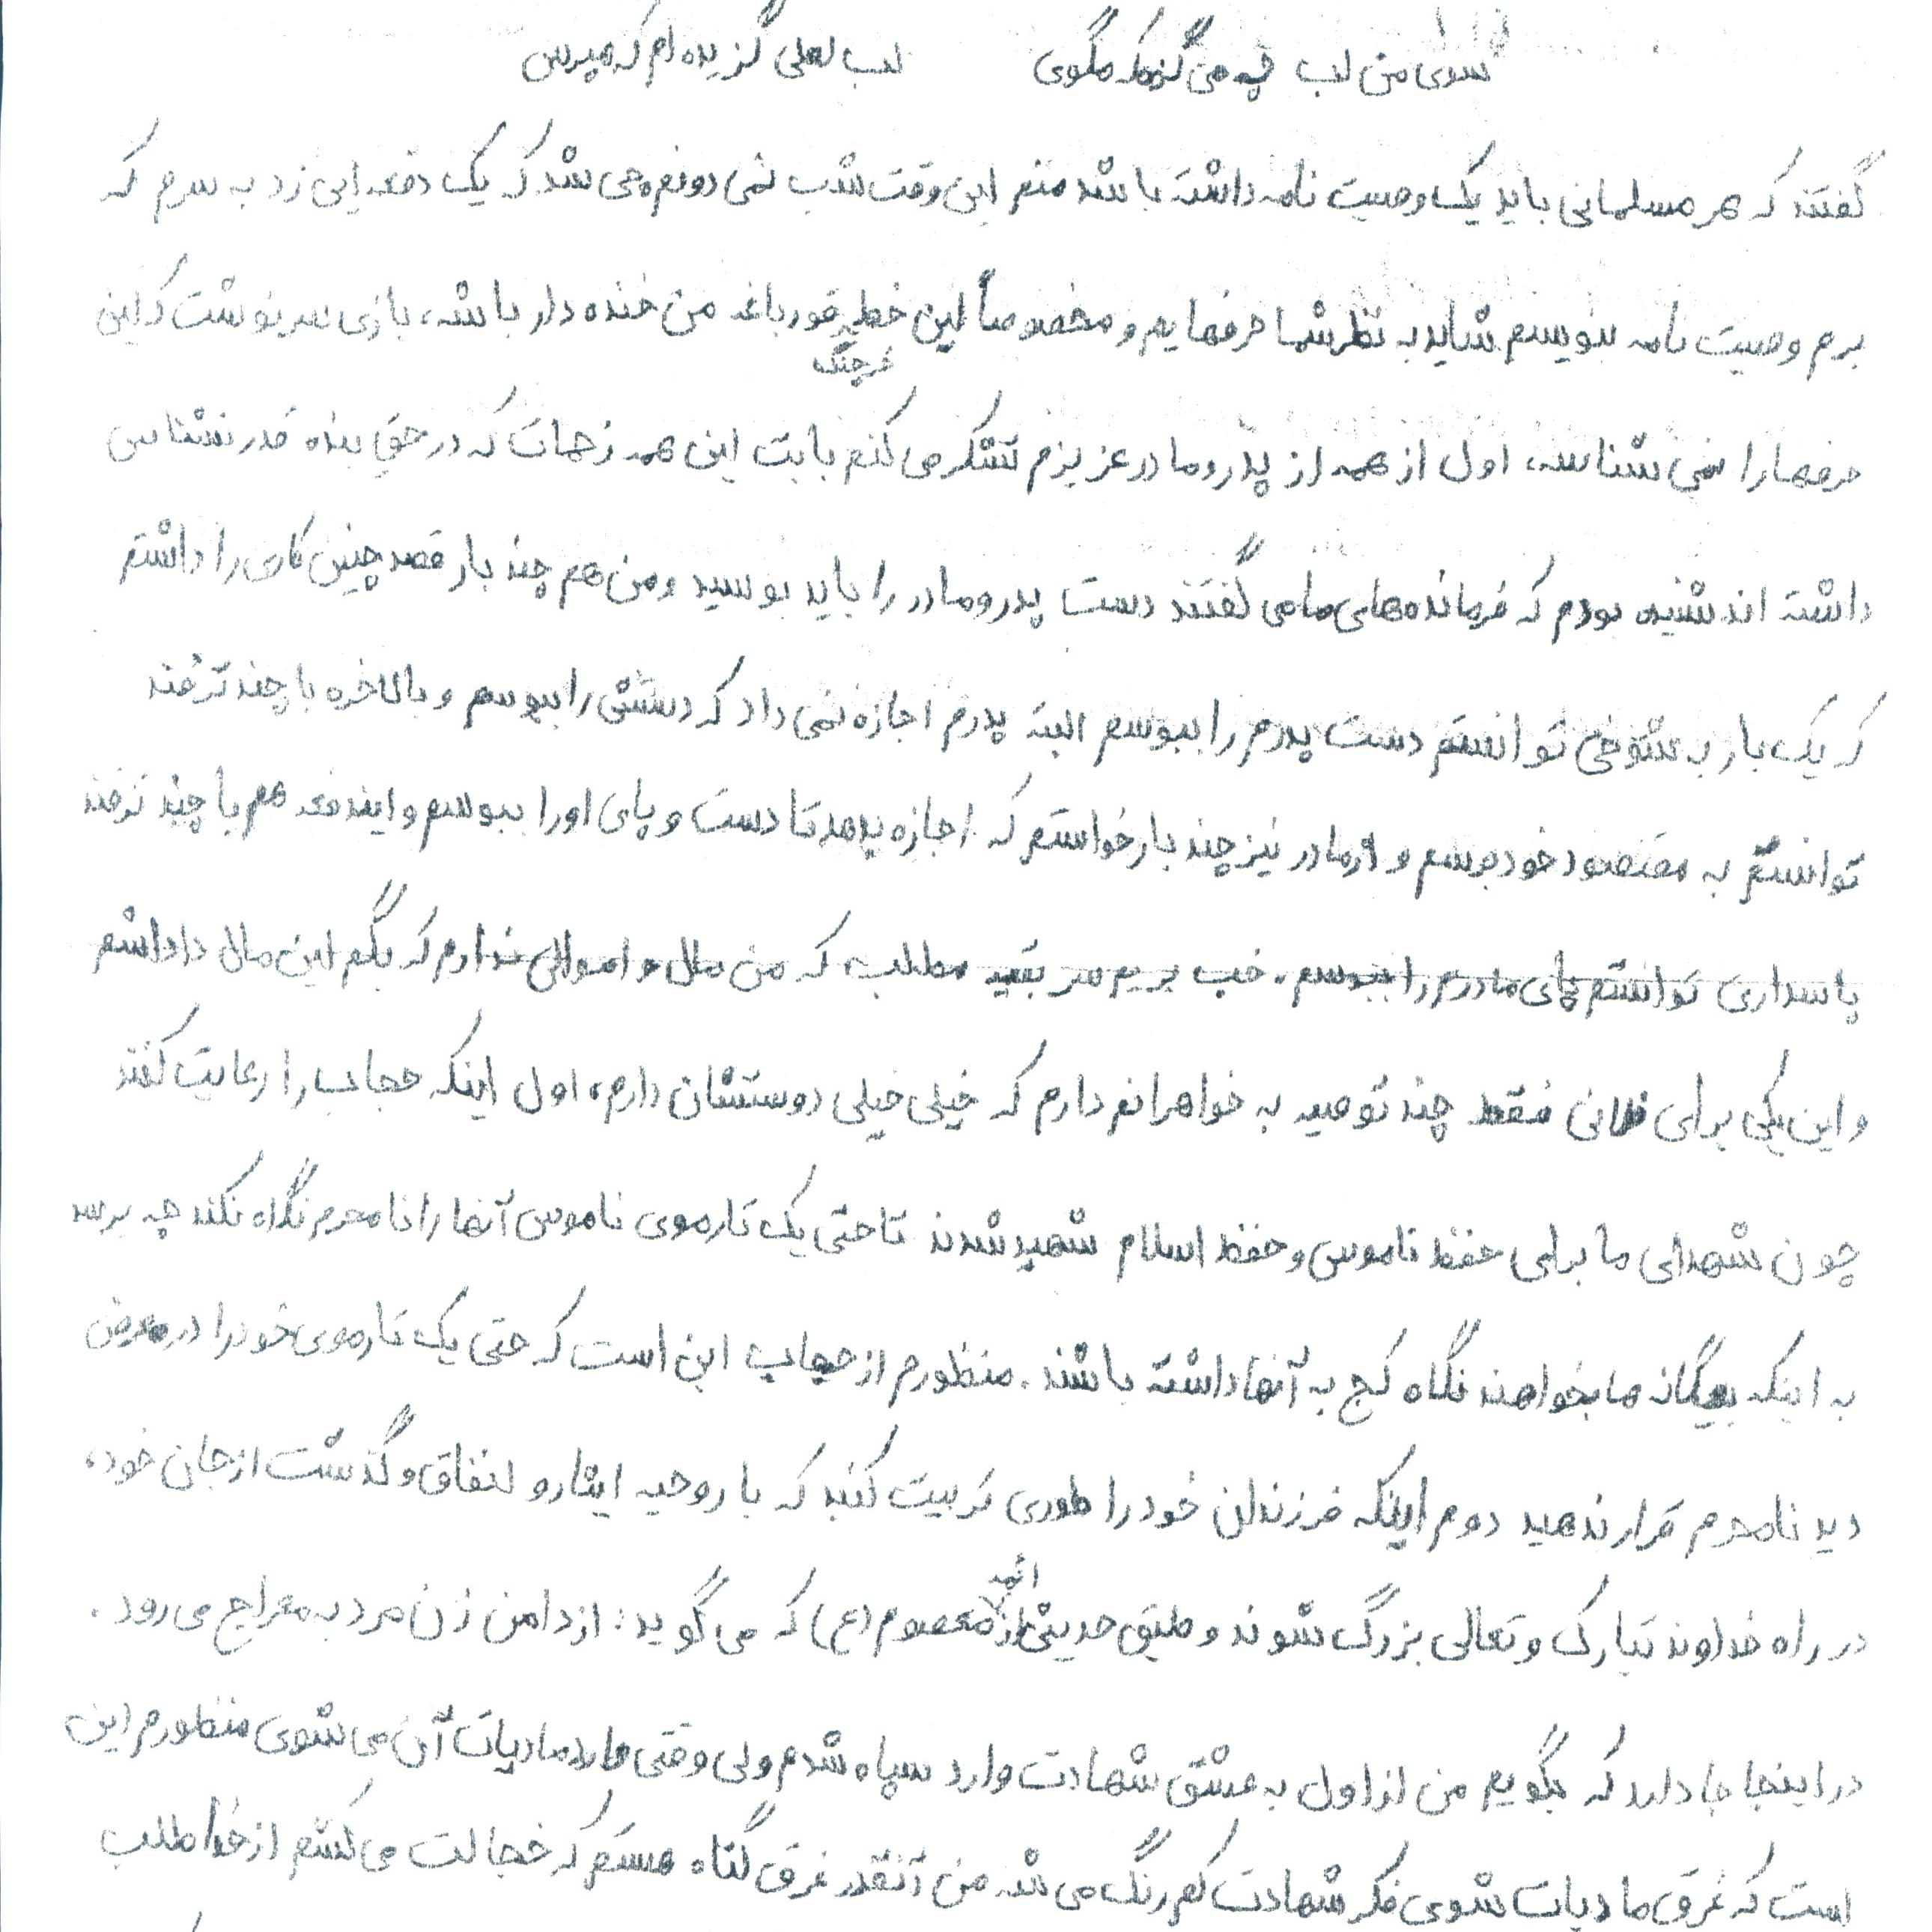 سوی من لب چه می گزی که مگوی لب لعلی گزیده ام که مپرس
گفتند که هر مسلمانی باید یک وصیت نامه داشته باشد منم این وقت شب نمی دونم چی شد که یک دفعه ایی زد به سرم که
برم وصیت نامه بنویسم شاید به نظر شما حرفهایم و مخصوصاً این خط قورباغه من خنده دار باشه، بازی سرنوشت که این
خرچنگ
حرفها را نمی شناسه، اول از همه از پدر و مادر عزیزم تشکر می کنم بابت این همه زحمات که در حق بنده قدرنشناس
داشته اند شنیده بودم که فرمانده های ما می گفتند دست پدر و مادر را باید بوسید و من هم چند بار قصد چنین کاری را داشتم
که یک بار به شوخی توانستم دست پدرم را ببوسم البته پدرم اجازه نمی داد که دستش را ببوسم و بالاخره با چند ترفند
توانستم به مقصود خود برسم و از مادر نیز چند بار خواستم که اجازه بدهد تا دست و پای او را ببوسم و ایندفعه هم با چند ترفند
پاسداری توانستم پای مادرم را ببوسم. خب بریم سر بقیه مطلب که من مال و اموالی ندارم که بگم این مال داداشم
و این یکی برای فلانی فقط چند توصیه به خواهرانم دارم که خیلی خیلی دوستشان دارم، اول اینکه حجاب را رعایت کنند
چون شهدای ما برای حفظ ناموس و حفظ اسلام شهید شدند تا حتی یک تار موی ناموس آنها را نامحرم نگاه نکند چه برسد
به اینکه بیگانه ها بخواهند نگاه کج به آنها داشته باشند. منظورم از حجاب این است که حتی یک تار موی خود را در معرض
دید نامحرم قرار ندهید دوم اینکه فرزندان خود را طوری تربیت کنند که با روحیه ایثار و انفاق و گذشت از جان خود،
در راه خداوند تبارک و تعالی بزرگ شوند و طبق حدیثی از ائمه معصوم (ع) که می گوید: از دامن زن مرد به معراج می رود.
در اینجا جا دارد که بگویم من از اول به عشق شهادت وارد سپاه شدم ولی وقتی وارد مادیات آن می شوی منظورم این
است که غرق مادیات شوی فکر شهادت کم رنگ می شه من آنقدر غرق گناه هستم که خجالت می کشم از خدا طلب